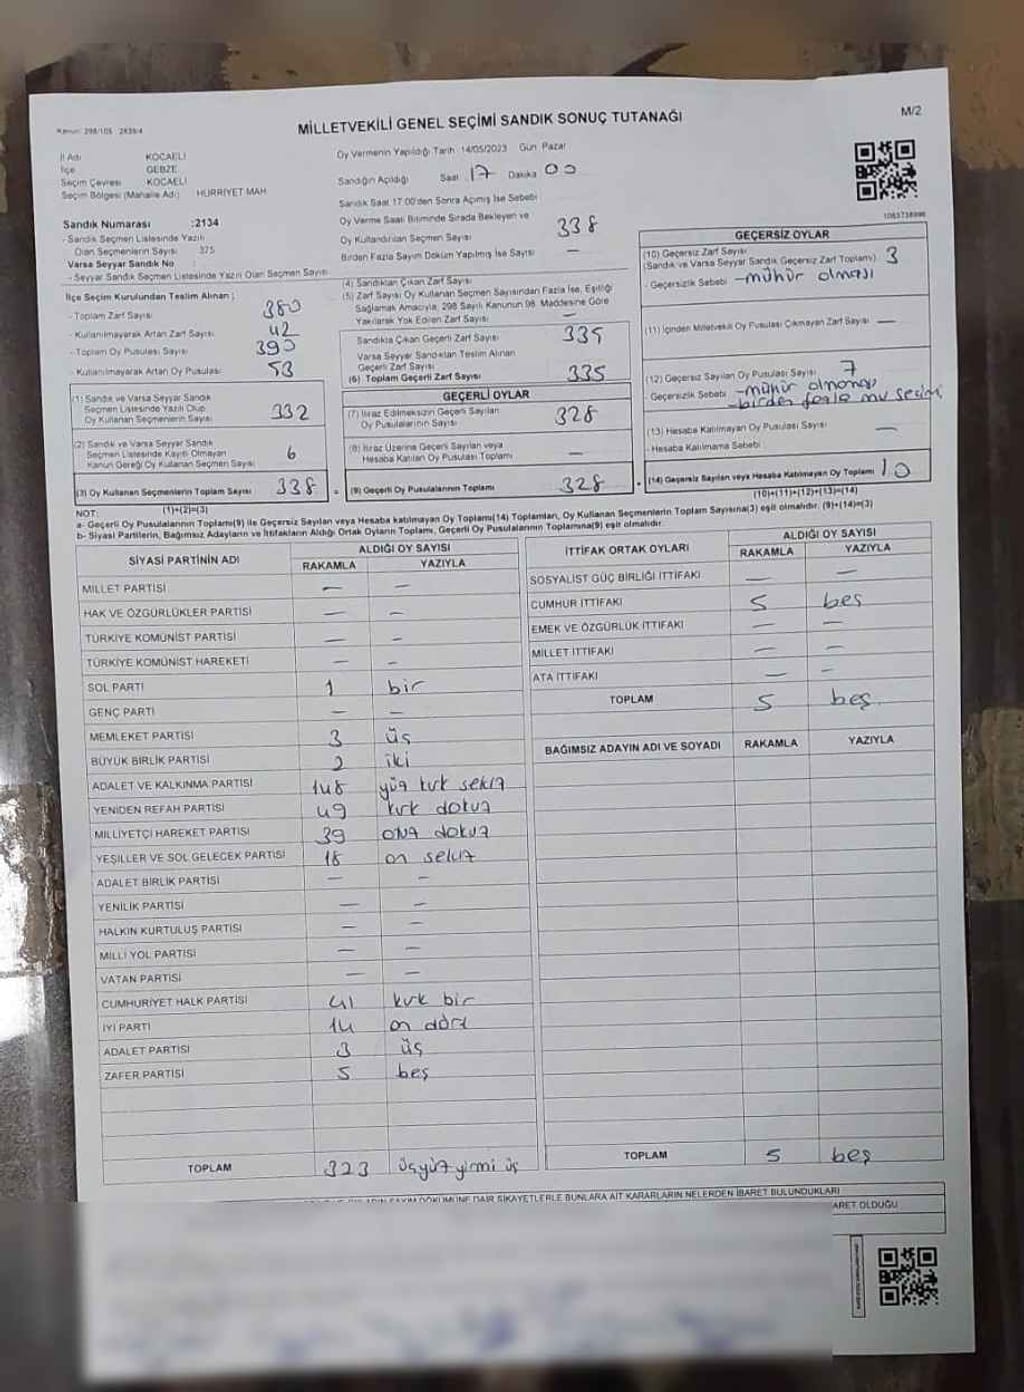 MİLLETVEKİLİ GENEL SEÇİMİ SANDIK SONUÇ TUTANAĞI
M/2
İl Adı KOCAELİ
İlçe GEBZE
Seçim Çevresi KOCAELİ
Seçim Bölgesi (Mahalle Adı) HÜRRİYET MAH
Sandık Numarası :2134
- Sandık Seçmen Listesinde Yazılı
Olan Seçmenlerin Sayısı 375
Varsa Seyyar Sandık No
- Seyyar Sandık Seçmen Listesinde Yazılı Olan Seçmen Sayısı
İlçe Seçim Kurulundan Teslim Alınan ;
- Toplam Zarf Sayısı 380
- Kullanılmayarak Artan Zarf Sayısı 42
- Toplam Oy Pusulası Sayısı 390
- Kullanılmayarak Artan Oy Pusulası 53
(1) Sandık ve Varsa Seyyar Sandık
Seçmen Listesinde Yazılı Olup
Oy Kullanan Seçmenlerin Sayısı 332
(2) Sandık ve Varsa Seyyar Sandık
Seçmen Listesinde Kayıtlı Olmayan
Kanun Gereği Oy Kullanan Seçmen Sayısı 6
(3) Oy Kullanan Seçmenlerin Toplam Sayısı 338 =
(1)+(2)=(3)
Oy Vermenin Yapıldığı Tarih 14/05/2023 Gün Pazar
Sandığın Açıldığı Saat 17 Dakika 00
Sandık Saat 17:00'den Sonra Açılmış İse Sebebi
Oy Verme Saati Bitiminde Sırada Bekleyen ve
Oy Kullandırılan Seçmen Sayısı 338
Birden Fazla Sayım Döküm Yapılmış İse Sayısı —
(4) Sandıktan Çıkan Zarf Sayısı
(5) Zarf Sayısı Oy Kullanan Seçmen Sayısından Fazla İse, Eşitliği
Sağlamak Amacıyla, 298 Sayılı Kanunun 98. Maddesine Göre
Yakılarak Yok Edilen Zarf Sayısı —
Sandıkta Çıkan Geçerli Zarf Sayısı 335
Varsa Seyyar Sandıktan Teslim Alınan
Geçerli Zarf Sayısı
(6) Toplam Geçerli Zarf Sayısı 335
GEÇERLİ OYLAR
(7) İtiraz Edilmeksizin Geçerli Sayılan
Oy Pusulalarının Sayısı 328
(8) İtiraz Üzerine Geçerli Sayılan veya
Hesaba Katılan Oy Pusulası Toplamı —
(9) Geçerli Oy Pusulalarının Toplamı 328 +
GEÇERSİZ OYLAR
(10) Geçersiz Zarf Sayısı 3
(Sandık ve Varsa Seyyar Sandık Geçersiz Zarf Toplamı)
- Geçersizlik Sebebi -mühür olması
(11) İçinden Milletvekili Oy Pusulası Çıkmayan Zarf Sayısı —
(12) Geçersiz Sayılan Oy Pusulası Sayısı 7
Geçersizlik Sebebi -mühür olmaması
-birden fazla mv seçimi
(13) Hesaba Katılmayan Oy Pusulası Sayısı —
- Hesaba Katılmama Sebebi
(14) Geçersiz Sayılan veya Hesaba Katılmayan Oy Toplamı 10
(10)+(11)+(12)+(13)=(14)
NOT:
a- Geçerli Oy Pusulalarının Toplamı(9) ile Geçersiz Sayılan veya Hesaba katılmayan Oy Toplamı(14) Toplamları, Oy Kullanan Seçmenlerin Toplam Sayısına(3) eşit olmalıdır. (9)+(14)=(3)
b- Siyasi Partilerin, Bağımsız Adayların ve İttifakların Aldığı Ortak Oyların Toplamı, Geçerli Oy Pusulalarının Toplamına(9) eşit olmalıdır.
SİYASİ PARTİNİN ADI ALDIĞI OY SAYISI
RAKAMLA YAZIYLA
MİLLET PARTİSİ — —
HAK VE ÖZGÜRLÜKLER PARTİSİ — —
TÜRKİYE KOMÜNİST PARTİSİ — —
TÜRKİYE KOMÜNİST HAREKETİ — —
SOL PARTİ 1 bir
GENÇ PARTİ — —
MEMLEKET PARTİSİ 3 üç
BÜYÜK BİRLİK PARTİSİ 2 iki
ADALET VE KALKINMA PARTİSİ 148 yüz kırk sekiz
YENİDEN REFAH PARTİSİ 49 kırk dokuz
MİLLİYETÇİ HAREKET PARTİSİ 39 otuz dokuz
YEŞİLLER VE SOL GELECEK PARTİSİ 18 on sekiz
ADALET BİRLİK PARTİSİ — —
YENİLİK PARTİSİ — —
HALKIN KURTULUŞ PARTİSİ — —
MİLLİ YOL PARTİSİ — —
VATAN PARTİSİ — —
CUMHURİYET HALK PARTİSİ 41 kırk bir
İYİ PARTİ 14 on dört
ADALET PARTİSİ 3 üç
ZAFER PARTİSİ 5 beş
TOPLAM 323 üçyüz yirmi üç
İTTİFAK ORTAK OYLARI ALDIĞI OY SAYISI
RAKAMLA YAZIYLA
SOSYALİST GÜÇ BİRLİĞİ İTTİFAKI — —
CUMHUR İTTİFAKI 5 beş
EMEK VE ÖZGÜRLÜK İTTİFAKI — —
MİLLET İTTİFAKI — —
ATA İTTİFAKI — —
TOPLAM 5 beş
BAĞIMSIZ ADAYIN ADI VE SOYADI RAKAMLA YAZIYLA
TOPLAM 5 beş
DÖKÜMÜNE DAİR ŞİKAYETLERLE BUNLARA AİT KARARLARIN NELERDEN İBARET BULUNDUKLARI
ARET OLDUĞU